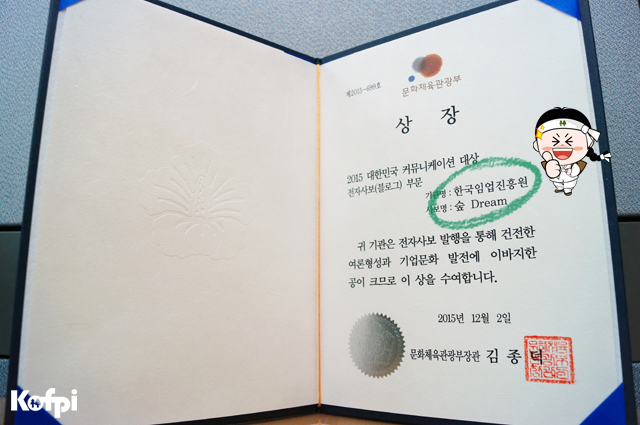 제2015-698호
문화체육관광부
상 장
2015 대한민국 커뮤니케이션 대상
전자사보(블로그) 부문
기관명 : 한국임업진흥원
사보명 : 숲 Dream
귀 기관은 전자사보 발행을 통해 건전한
여론형성과 기업문화 발전에 이바지한
공이 크므로 이 상을 수여합니다.
2015년 12월 2일
문화체육관광부장관 김 종 덕
Kofpi